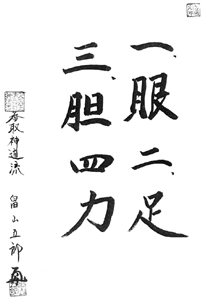 一、眼二、足
三、胆四力
香取神道流
畠山五郎